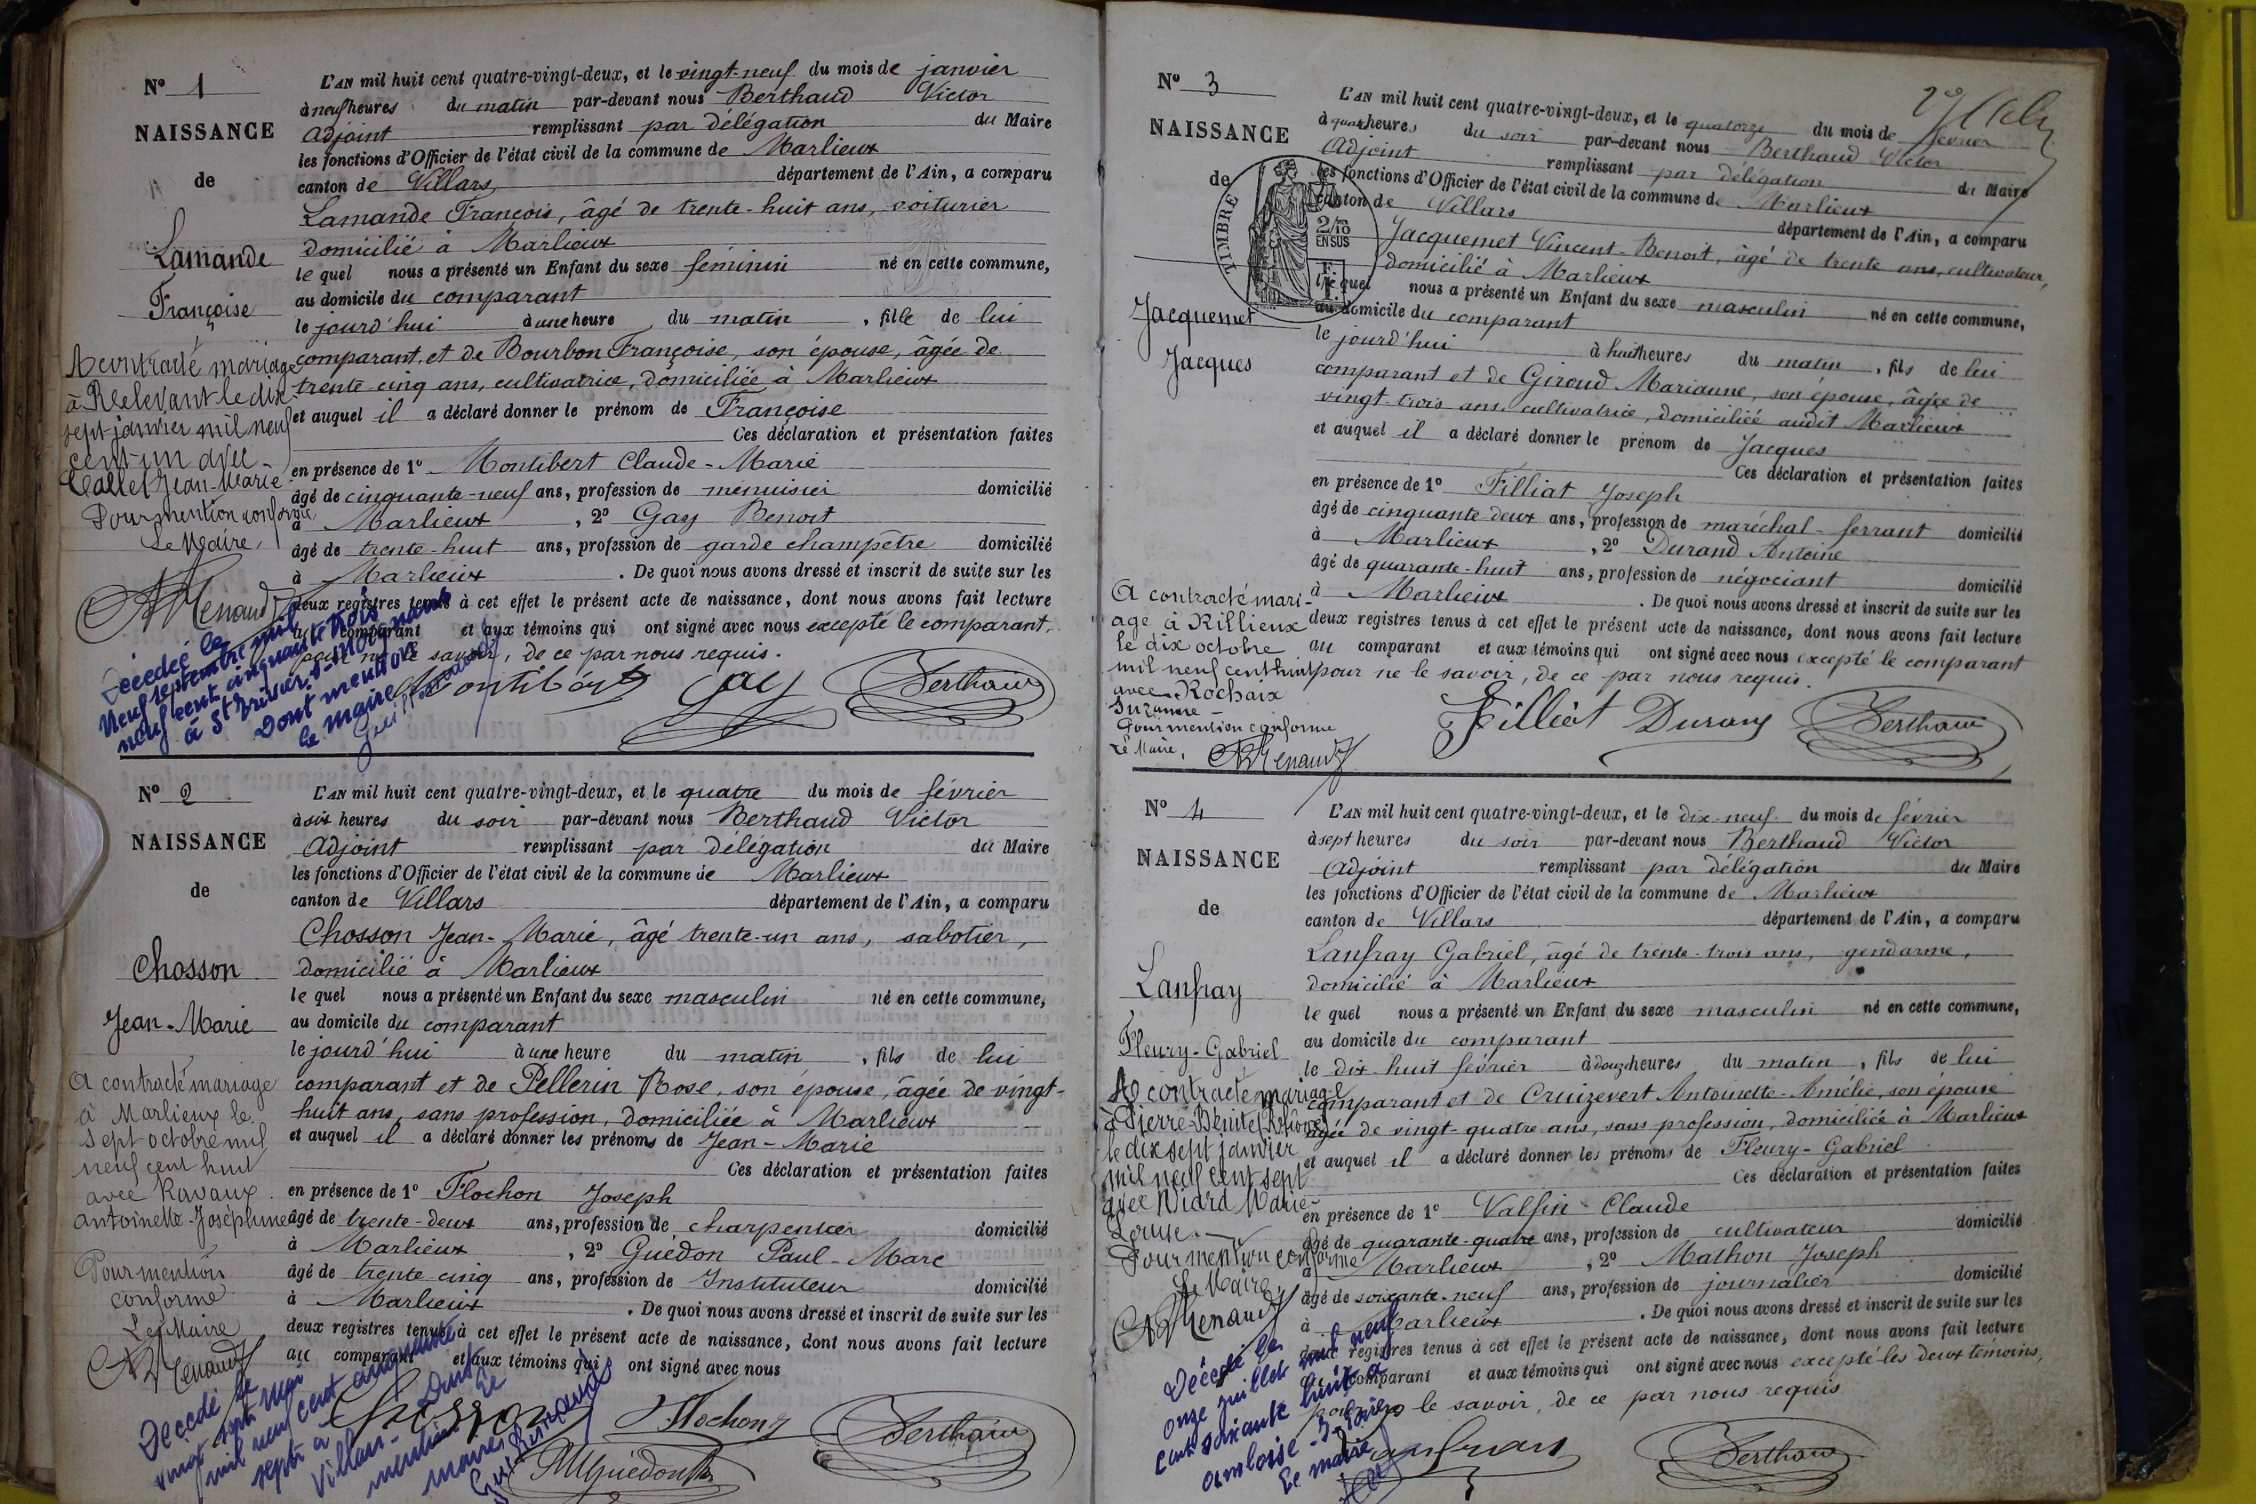 N° 1
NAISSANCE
de
Lamande
Françoise
A contracté mariage
à Relevant le dix
sept janvier mil neuf
cent un avec
Callet Jean-Marie
Pour mention conforme
Le Maire,
Décédée le
neuf septembre mil
neuf cent cinquante trois
à St Trivier s-Moignans
Dont mention
le maire
L'AN mil huit cent quatre-vingt-deux, et le vingt-neuf du mois de janvier
à neuf heures du matin par-devant nous Berthaud Victor
Adjoint remplissant par délégation du Maire
les fonctions d'Officier de l'état civil de la commune de Marlieux
canton de Villars département de l'Ain, a comparu
Lamande François, âgé de trente-huit ans, voiturier
domicilié à Marlieux
le quel nous a présenté un Enfant du sexe féminin né en cette commune,
au domicile du comparant
le jourd'hui à une heure du matin, fille de lui
comparant, et de Bourbon Françoise, son épouse, âgée de
trente cinq ans, cultivatrice, domiciliée à Marlieux
et auquel il a déclaré donner le prénom de Françoise
Ces déclaration et présentation faites
en présence de 1° Montibert Claude-Marie
âgé de cinquante-neuf ans, profession de menuisier domicilié
à Marlieux, 2° Gay Benoit
âgé de trente-huit ans, profession de garde champetre domicilié
à Marlieux. De quoi nous avons dressé et inscrit de suite sur les
deux registres tenus à cet effet le présent acte de naissance, dont nous avons fait lecture
au comparant et aux témoins qui ont signé avec nous excepté le comparant,
pour ne le savoir, de ce par nous requis.
Montibert Gay Berthaud
N° 2
NAISSANCE
de
Chosson
Jean-Marie
A contracté mariage
à Marlieux le
sept octobre mil
neuf cent huit
avec Ravaux
Antoinette-Joséphine
Pour mention
conforme
Le Maire
Décédé le
vingt sept mai
mil neuf cent cinquante
sept à
Villars - Dont
mention le
maire
L'AN mil huit cent quatre-vingt-deux, et le quatre du mois de février
à six heures du soir par-devant nous Berthaud Victor
Adjoint remplissant par délégation du Maire
les fonctions d'Officier de l'état civil de la commune de Marlieux
canton de Villars département de l'Ain, a comparu
Chosson Jean-Marie, âgé trente-un ans, sabotier,
domicilié à Marlieux
le quel nous a présenté un Enfant du sexe masculin né en cette commune,
au domicile du comparant
le jourd'hui à une heure du matin, fils de lui
comparant et de Pellerin Rose, son épouse, âgée de vingt-
huit ans, sans profession, domiciliée à Marlieux
et auquel il a déclaré donner les prénoms de Jean-Marie
Ces déclaration et présentation faites
en présence de 1° Flochon Joseph
âgé de trente-deux ans, profession de charpentier domicilié
à Marlieux, 2° Guédon Paul-Marc
âgé de trente cinq ans, profession de Instituteur domicilié
à Marlieux. De quoi nous avons dressé et inscrit de suite sur les
deux registres tenus à cet effet le présent acte de naissance, dont nous avons fait lecture
au comparant et aux témoins qui ont signé avec nous
Chosson Flochon Berthaud
PMGuédon
N° 3
NAISSANCE
de
TIMBRE
2/10
EN SUS
Jacquemet
Jacques
A contracté mari-
age à Rillieux
le dix octobre
mil neuf cent huit
avec Rochaix
Suzanne
Pour mention conforme
Le Maire,
L'AN mil huit cent quatre-vingt-deux, et le quatorze du mois de février
à quatre heures du soir par-devant nous Berthaud Victor
Adjoint remplissant par délégation du Maire
les fonctions d'Officier de l'état civil de la commune de Marlieux
canton de Villars département de l'Ain, a comparu
Jacquemet Vincent-Benoit, âgé de trente ans, cultivateur,
domicilié à Marlieux
le quel nous a présenté un Enfant du sexe masculin né en cette commune,
au domicile du comparant
le jourd'hui à huit heures du matin, fils de lui
comparant et de Giroud Marianne, son épouse, âgée de
vingt-trois ans, cultivatrice, domiciliée audit Marlieux
et auquel il a déclaré donner le prénom de Jacques
Ces déclaration et présentation faites
en présence de 1° Filliat Joseph
âgé de cinquante deux ans, profession de maréchal-ferrant domicilié
à Marlieux, 2° Durand Antoine
âgé de quarante-huit ans, profession de négociant domicilié
à Marlieux. De quoi nous avons dressé et inscrit de suite sur les
deux registres tenus à cet effet le présent acte de naissance, dont nous avons fait lecture
au comparant et aux témoins qui ont signé avec nous excepté le comparant
pour ne le savoir, de ce par nous requis.
Filliat Durand Berthaud
N° 4
NAISSANCE
de
Lanfray
Fleury-Gabriel
A contracté mariage
à Pierre-Bénite (Rhône)
le dix sept janvier
mil neuf cent sept
avec Niard Marie-
Louise
Pour mention conforme
Le Maire,
Décédé le
onze juillet mil neuf
cent soixante huit à
Le maire
L'AN mil huit cent quatre-vingt-deux, et le dix-neuf du mois de février
à sept heures du soir par-devant nous Berthaud Victor
Adjoint remplissant par délégation du Maire
les fonctions d'Officier de l'état civil de la commune de Marlieux
canton de Villars département de l'Ain, a comparu
Lanfray Gabriel, âgé de trente-trois ans, gendarme,
domicilié à Marlieux
le quel nous a présenté un Enfant du sexe masculin né en cette commune,
au domicile du comparant
le dix-huit février à douze heures du matin, fils de lui
comparant et de Cruizevert Antoinette-Amélie, son épouse
âgée de vingt-quatre ans, sans profession, domiciliée à Marlieux
et auquel il a déclaré donner les prénoms de Fleury-Gabriel
Ces déclaration et présentation faites
en présence de 1° Valfin Claude
âgé de quarante-quatre ans, profession de cultivateur domicilié
à Marlieux, 2° Mathon Joseph
âgé de soixante-neuf ans, profession de journalier domicilié
à Marlieux. De quoi nous avons dressé et inscrit de suite sur les
deux registres tenus à cet effet le présent acte de naissance, dont nous avons fait lecture
au comparant et aux témoins qui ont signé avec nous excepté les deux témoins,
pour ne le savoir, de ce par nous requis
Lanfray Berthaud